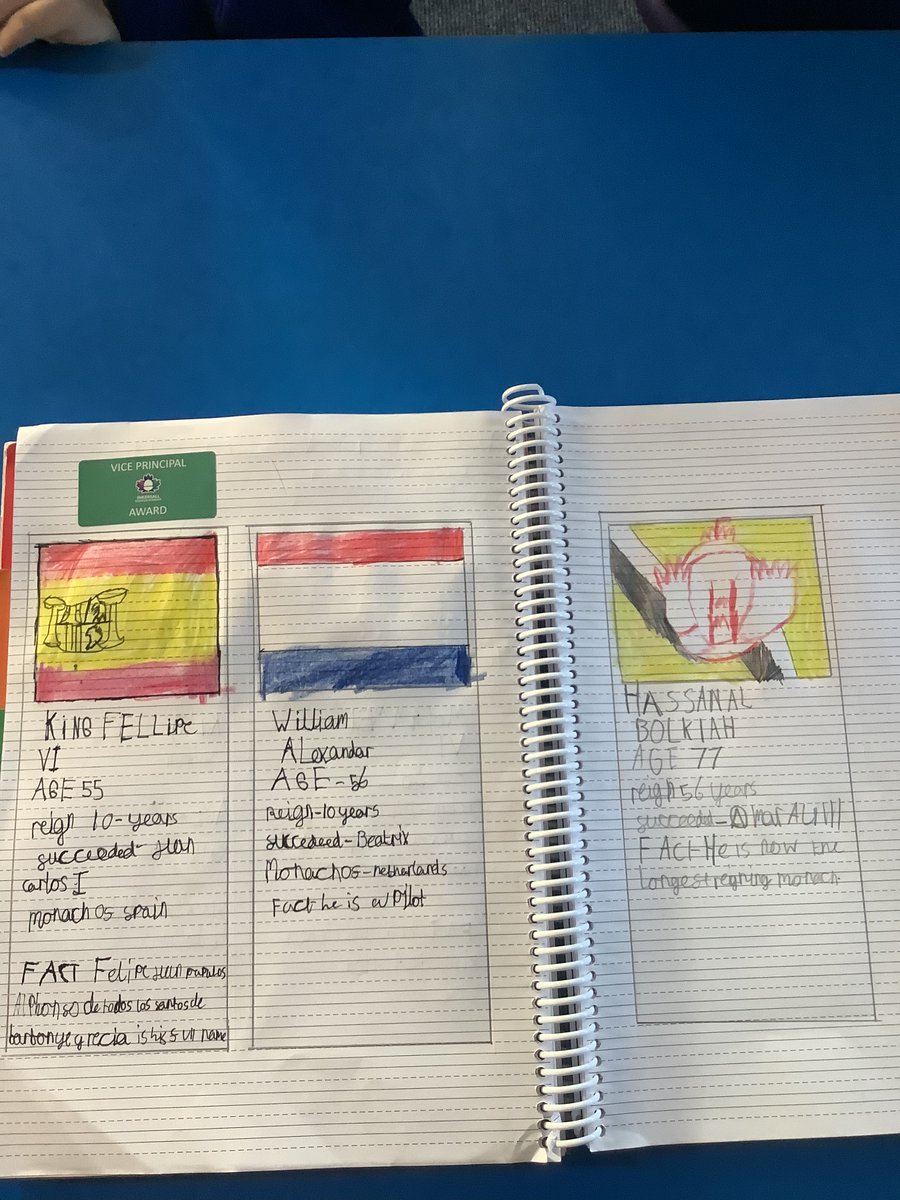 VICE PRINCIPAL
AWARD
KING FELLIPE
VI
AGE 55
reign 10-years
succeeded- Juan
carlos I
monach os spain
FACT Felipe Juan
Alphonso de todos los santos de
y recia is his full name
William
Alexandar
AGE-56
Reign-10 years
succeeded-Beatrix
Monachos-netherlands
Fact he is a Pilot
HASSANAL
BOLKIAH
AGE 77
reign 56 years
succeeded-Omar ALi III
FACT He is now the
longest reigning monach.